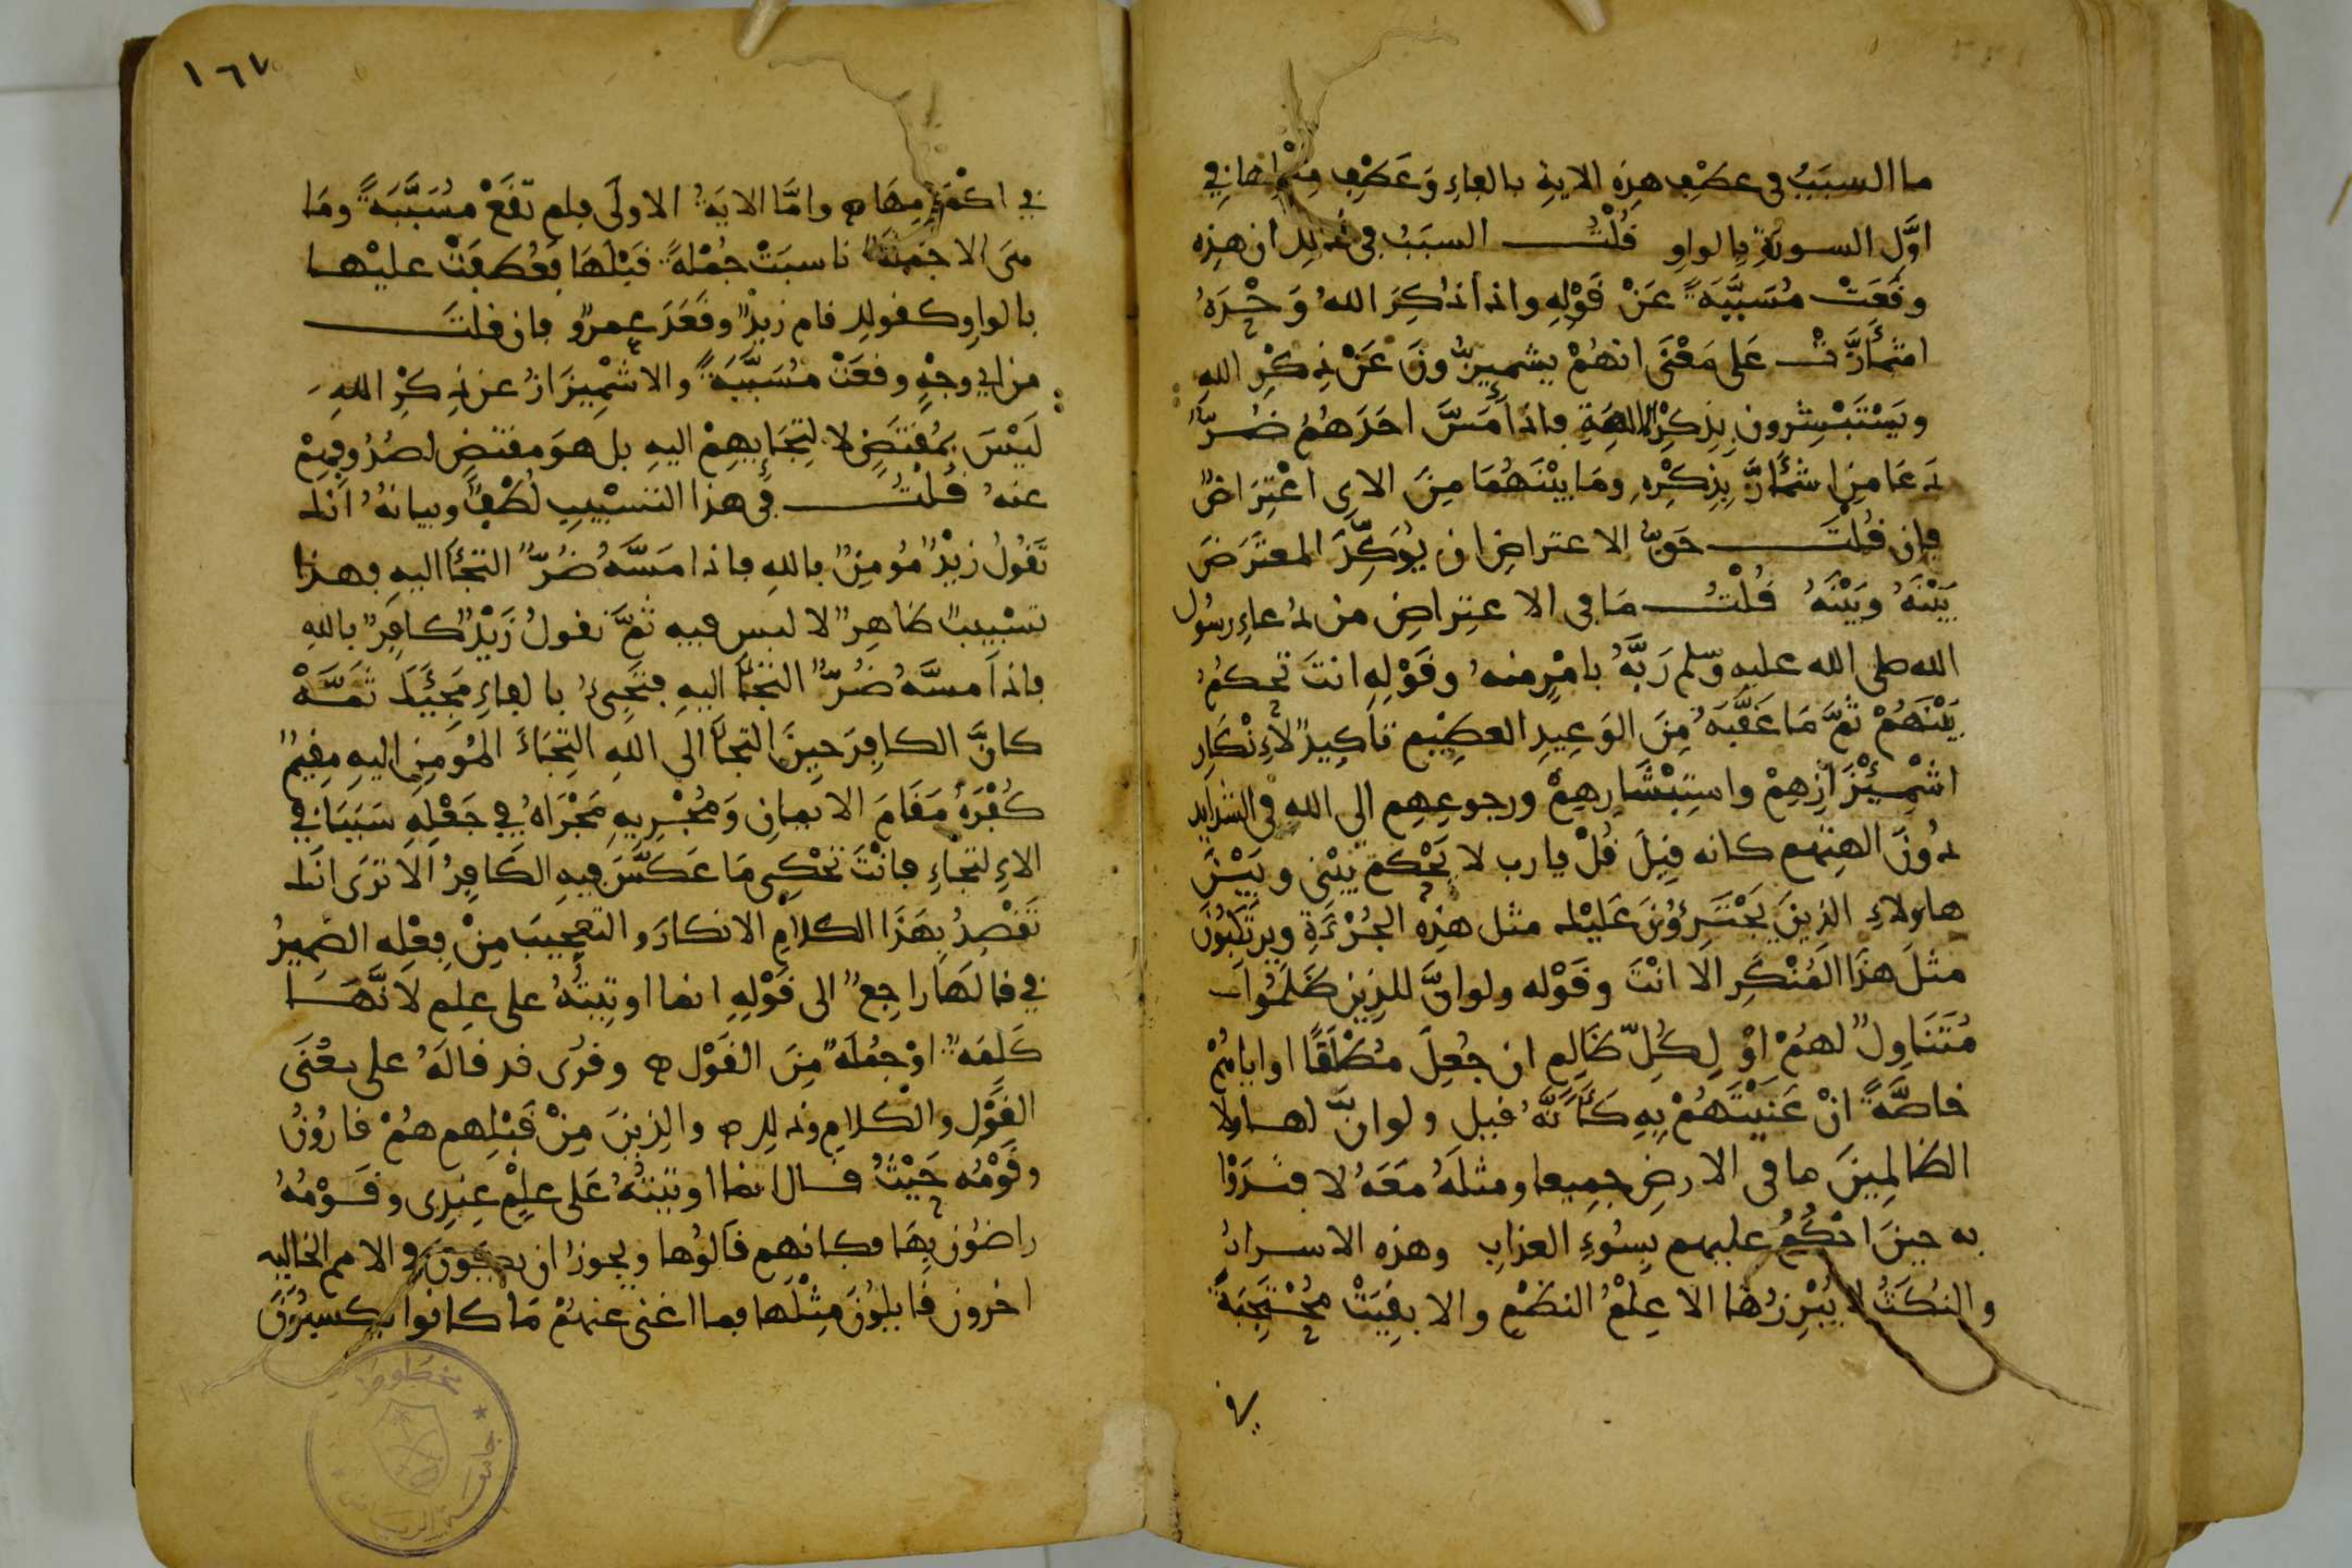 ما السبَبُ في عطْفِ هذِه الايةِ بالفاءِ وَعَطْفِ مثلها في
اوَّل السورةِ بالواوِ قُلْتُ السبَبُ في ذلك ان هذِه
وقَعَتْ مُسَبَّبَةً عَنْ قَوْلِه واذا ذُكِرَ اللهُ وَحْدَهُ
اشمأَزَّتْ عَلى مَعْنَى انهُمْ يشمئِزُّونَ عَنْ ذِكْرِ اللهِ
ويَسْتَبْشِرون بِذِكرِ الالهَةِ فاذا مَسَّ احَدَهُمْ ضُرٌّ
دَعَا مَنِ اشمَأَزَّ بِذِكْرِهِ ومَا بيْنَهُمَا مِنَ الاي اعْتِرَاضٌ
فإن قُلْتَ حَقُّ الاعتراضِ ان يُوَكِّدَ المعتَرَضَ
بَيْنَهُ وبَيْنَهُ قُلْتُ مَا في الاعتِراضِ من دُعاءِ رسُول
الله صلى الله عليه وسلم رَبَّهُ بامْرٍ منهُ وقَوْلِهِ انتَ تحكمُ
بَيْنَهُمْ ثمَّ مَا عَقَّبَهُ مِنَ الوَعِيدِ العظِيْم تاكِيدٌ لاِنْكَارِ
اشْمِئْزَازِهِمْ واسْتِبْشَارِهِمْ ورجوعِهِم الى الله في الشدايد
دُونَ الهتِهم كانه قِيلَ قُلْ يا رب لا يَحْكم بَيْنى وبَيْنَ
هاولاءِ الذِينَ يَجْتَرِؤُنَ عَلَيْك مثل هذِه الجُرْءَةِ ويرتكبُونَ
مثلَ هذَا المُنْكَرِ الا انْتَ وقَوْله ولو انَّ للذِين ظَلمُوا
مُتَنَاوِلٌ لهُمْ اوْ لِكُلِّ ظَالِمٍ ان جُعِلَ مُطْلَقًا او اياهُمْ
خاصَّةً انْ عَنَيْتَهُمْ بِهِ كَأَنَّهُ قيل ولو انَّ لهاولا
الظالمِينَ ما في الارضِ جمِيعا ومثلَهُ مَعَهُ لافتَدَوْا
به حينَ احْكُمُ عليهم بِسُوءِ العذابِ وهذه الاسرارُ
والنُكَتُ لا يُبْرِزُها الا عِلْمُ النظْمِ والا بقِيَتْ مُحْتَجِبَةً
في
١٦٧
في اكْمَامِهَا ه وامَّا الايَةُ الاولَى فلم تقَعْ مُسَبَّبَةً ومَا
هى الا جمْلةٌ ناسبَتْ جُمْلةً قبْلَهَا فعُطِفَتْ عليْها
بالواوِ كقولك قام زيْدٌ وقَعَدَ عمرٌو فإن قلتَ
من اي وجْهٍ وقعَتْ مُسَبَّبَةً والاشْمِيزَازُ عن ذِكْرِ اللهِ
لَيْسَ بمُقتَضٍ لالتِجَايِهِمْ اليهِ بل هوَ مقتضٍ لصُدُوفِهِمْ
عنهُ قُلْتُ في هذا التسْبِيبِ لُطْفٌ وبيانُهُ انَّك
تَقُولُ زيْدٌ مُومِنٌ باللهِ فاذا مَسَّهُ ضُرٌّ التجأ اليهِ فهذا
تسْبِيبٌ ظاهِرٌ لا لبس فيه ثمَّ تقولُ زَيْدٌ كافِرٌ باللهِ
فاذا مسَّهُ ضُرٌّ التجَأَ اليهِ فتَجِىءُ بالفاءِ مَجِيَك ثَمَّهْ
كانَّ الكافِرَ حينَ التجأ الى اللهِ التِجَاءَ المُومِنِ اليهِ مقِيمٌ
كُفْرَهُ مَقَامَ الايمانِ وَمُجْرِيهِ مَجْرَاهُ في جَعْلِهِ سَبَبَا في
الاِلتجَاءِ فانْتَ تَحْكِى مَا عَكَسَ فيهِ الكَافِرُ الا تَرَى انَّك
تَقْصِدُ بهَذَا الكلامِ الانكارَ والتعجِيبَ مِنْ فِعْلِه الضمِيرُ
في قالهَا راجعٌ الى قَوْلِهِ انما اوتِيتُهُ على علمٍ لانَّهَا
كَلمَةٌ اوْ جمُلَةٌ مِنَ القَوْل ه وقرُى قد قالَهُ على معْنَى
القَوْلِ والْكلامِ وذلك ه والذِينَ مِنْ قَبْلِهم هُمْ قارُونُ
وقَوْمُه حَيْثُ قال انما اوتيتُهُ عَلى علْمٍ عِندِى وقَوْمُهُ
راضُون بِهَا فكانهم قَالُوها ويجوزُ ان يكُونَ في الامم الخاليه
اخرون قَايلُونَ مِثْلَها فما اغنى عنهُمْ مَا كانُوا يكسِبُونَ
مخطوطات
جامعة الرياض